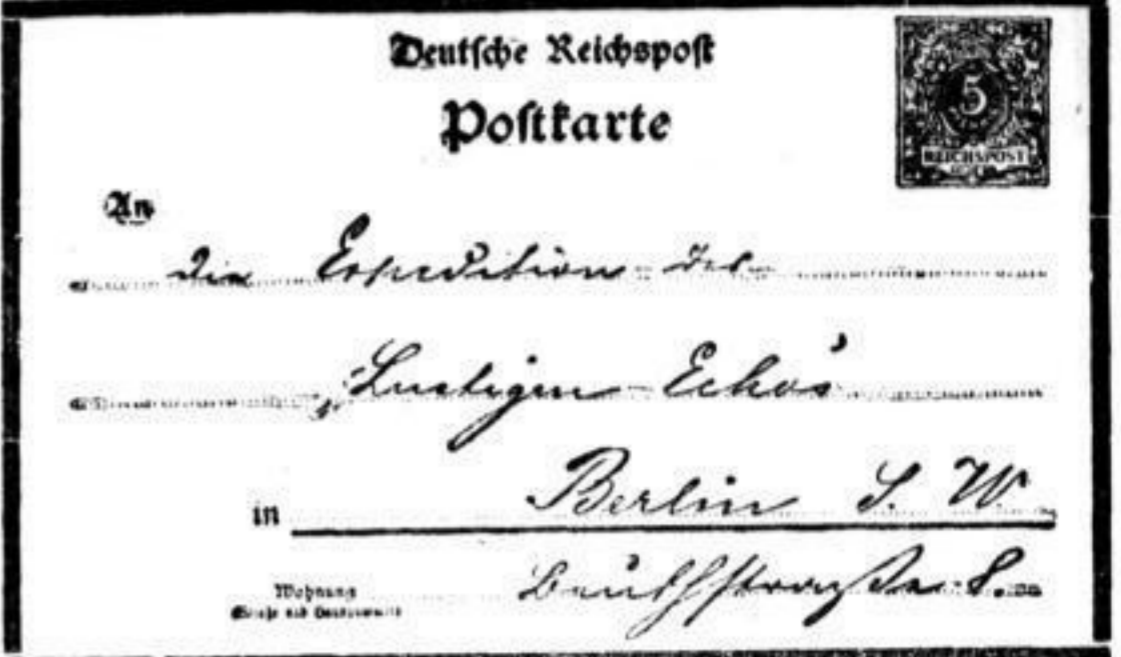 Deutsche Reichspost
Postkarte
5
REICHSPOST
An
die Expedition des
„Lustigen Echo's
in Berlin S. W
Wohnung
Beuthstraße 8.